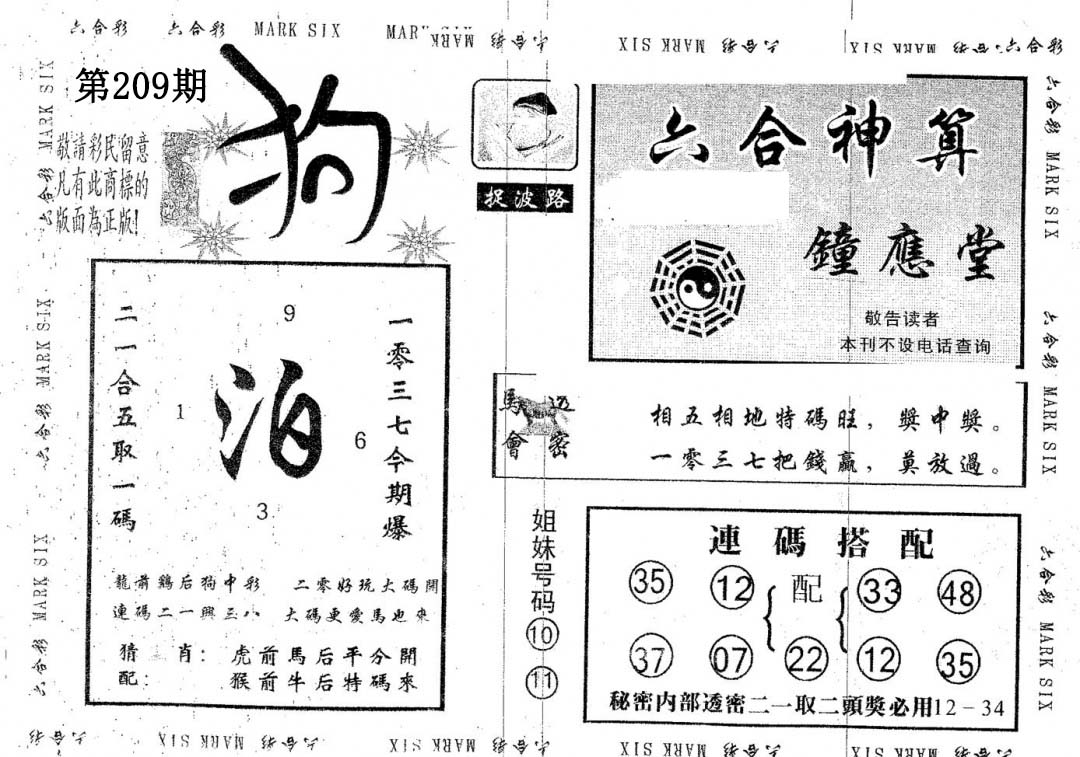 六合彩 六合彩 MARK SIX MAR
MARK SIX 六合彩 MARK SIX 六合彩
第209期
狗
敬請彩民留意
凡有此商標的
版面為正版!
二一合五取一碼
9
泊
1
6
3
一零三七今期爆
龍前鷄后狗中彩 二零好玩大碼開
連碼二一興三八 大碼更愛馬也來
猜 肖: 虎前馬后平分開
配: 猴前牛后特碼來
捉波路
六合神算
鐘應堂
敬告读者
本刊不设电话查询
馬會
透密
相五相地特碼旺,獎中獎。
一零三七把錢贏,莫放過。
姐妹号码
10
11
連碼搭配
35 12 配 33 48
37 07 22 12 35
秘密内部透密二一取二頭獎必用12-34
六合彩 MARK SIX 六合彩 MARK SIX 六合彩 MARK SIX
六合彩 MARK SIX 六合彩 MARK SIX 六合彩 MARK SIX
六合彩 MARK SIX 六合彩 MARK SIX 六合彩 MARK SIX 六合彩 MARK SIX 六合彩